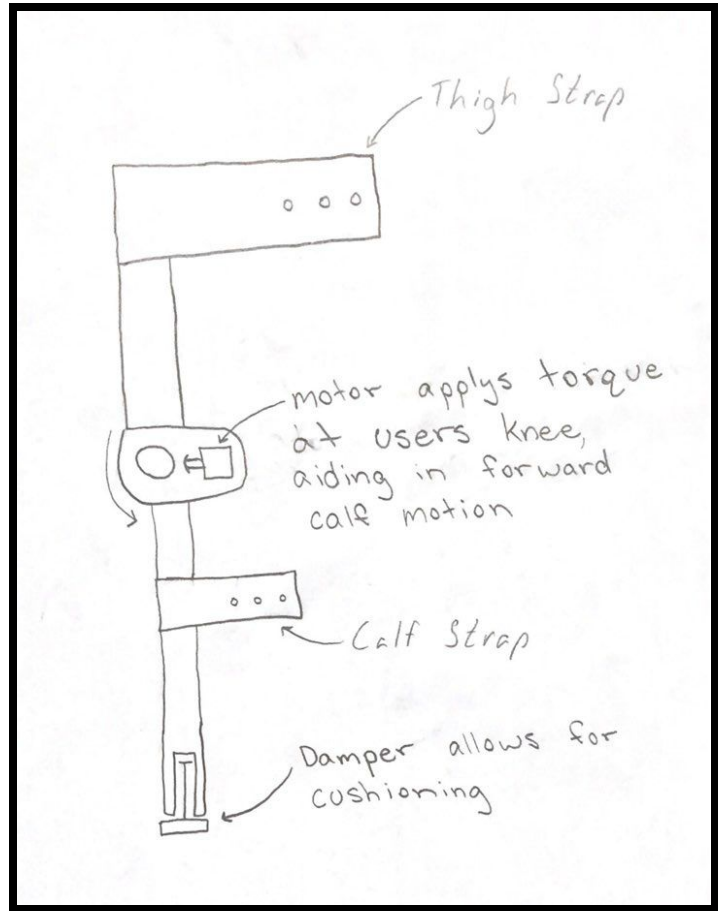 Thigh Strap
motor applys torque
at users knee,
aiding in forward
calf motion
Calf Strap
Damper allows for
cushioning